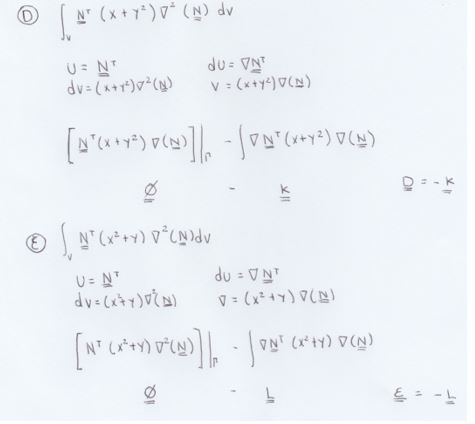 Ⓓ ∫_V N̲̲ᵀ (x+y²) ∇² (N̲) dv
U = N̲̲ᵀ dU = ∇N̲̲ᵀ
dv = (x+y²)∇²(N̲) V = (x+y²)∇(N̲)
[N̲̲ᵀ(x+y²) ∇(N̲)]|_Γ - ∫∇N̲ᵀ(x+y²) ∇(N̲)
∅̲̲ - K̲̲ D̲̲ = -K̲̲
Ⓔ ∫_V N̲ᵀ (x²+y) ∇²(N̲)dv
U = N̲ᵀ dU = ∇N̲ᵀ
dv = (x²+y)∇²(N̲) ∇ = (x²+y) ∇(N̲)
[Nᵀ (x²+y) ∇²(N̲)]|_Γ - ∫∇N̲ᵀ (x²+y) ∇(N̲)
∅̲̲ - L̲̲ E̲̲ = -L̲̲